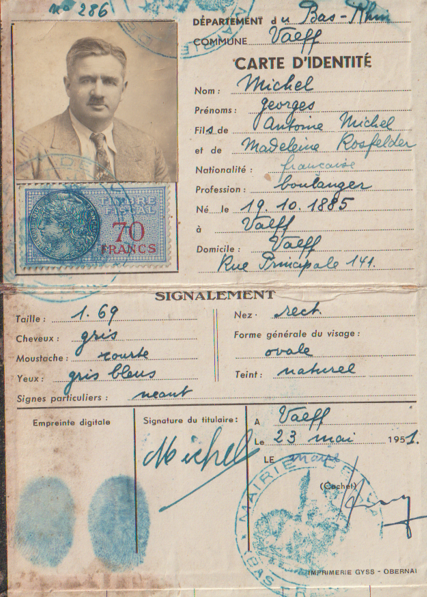 n° 286
DÉPARTEMENT du Bas-Rhin
COMMUNE Valff
CARTE D'IDENTITÉ
Nom : Michel
Prénoms : georges
Fils de Antoine Michel
et de Madeleine Rosfelder
Nationalité : française
Profession : boulanger
Né le 19.10.1885
à Valff
Domicile : Valff
Rue Principale 141.
TIMBRE
FISCAL
70
FRANCS
SIGNALEMENT
Taille : 1.69
Cheveux : gris
Moustache : courte
Yeux : gris bleus
Signes particuliers : néant
Nez : rect.
Forme générale du visage :
ovale
Teint : naturel
Empreinte digitale
Signature du titulaire :
Michel
A Valff
Le 23 mai 1951.
LE maire
(Cachet)
MAIRIE
BAS-RHIN
IMPRIMERIE GYSS - OBERNAI